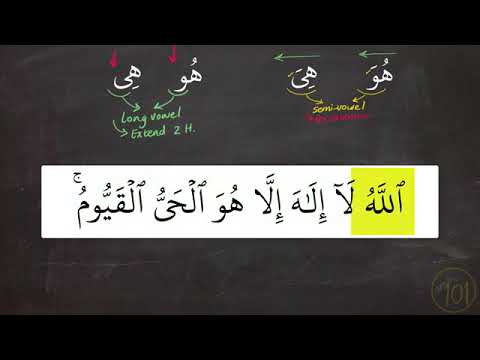 هُوَ هِىَ هُو هِى
semi-vowel
Long vowel
Extend 2 H.
ٱللَّهُ لَآ إِلَـٰهَ إِلَّا هُوَ ٱلْحَىُّ ٱلْقَيُّومُ ۚ
101